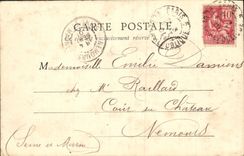 CARTE POSTALE
Mademoiselle Emilie Damiens
chez Mr Raillard
Coin du Château
Nemours
Seine et Marne
10